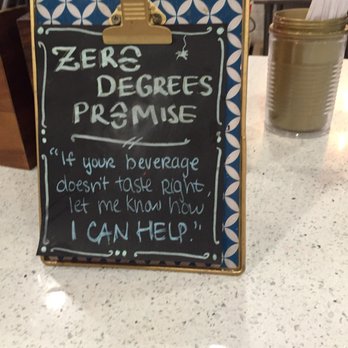 ZERO
DEGREES
PROMISE
"If your beverage
doesn't taste Right,
let me know how
I CAN HELP."